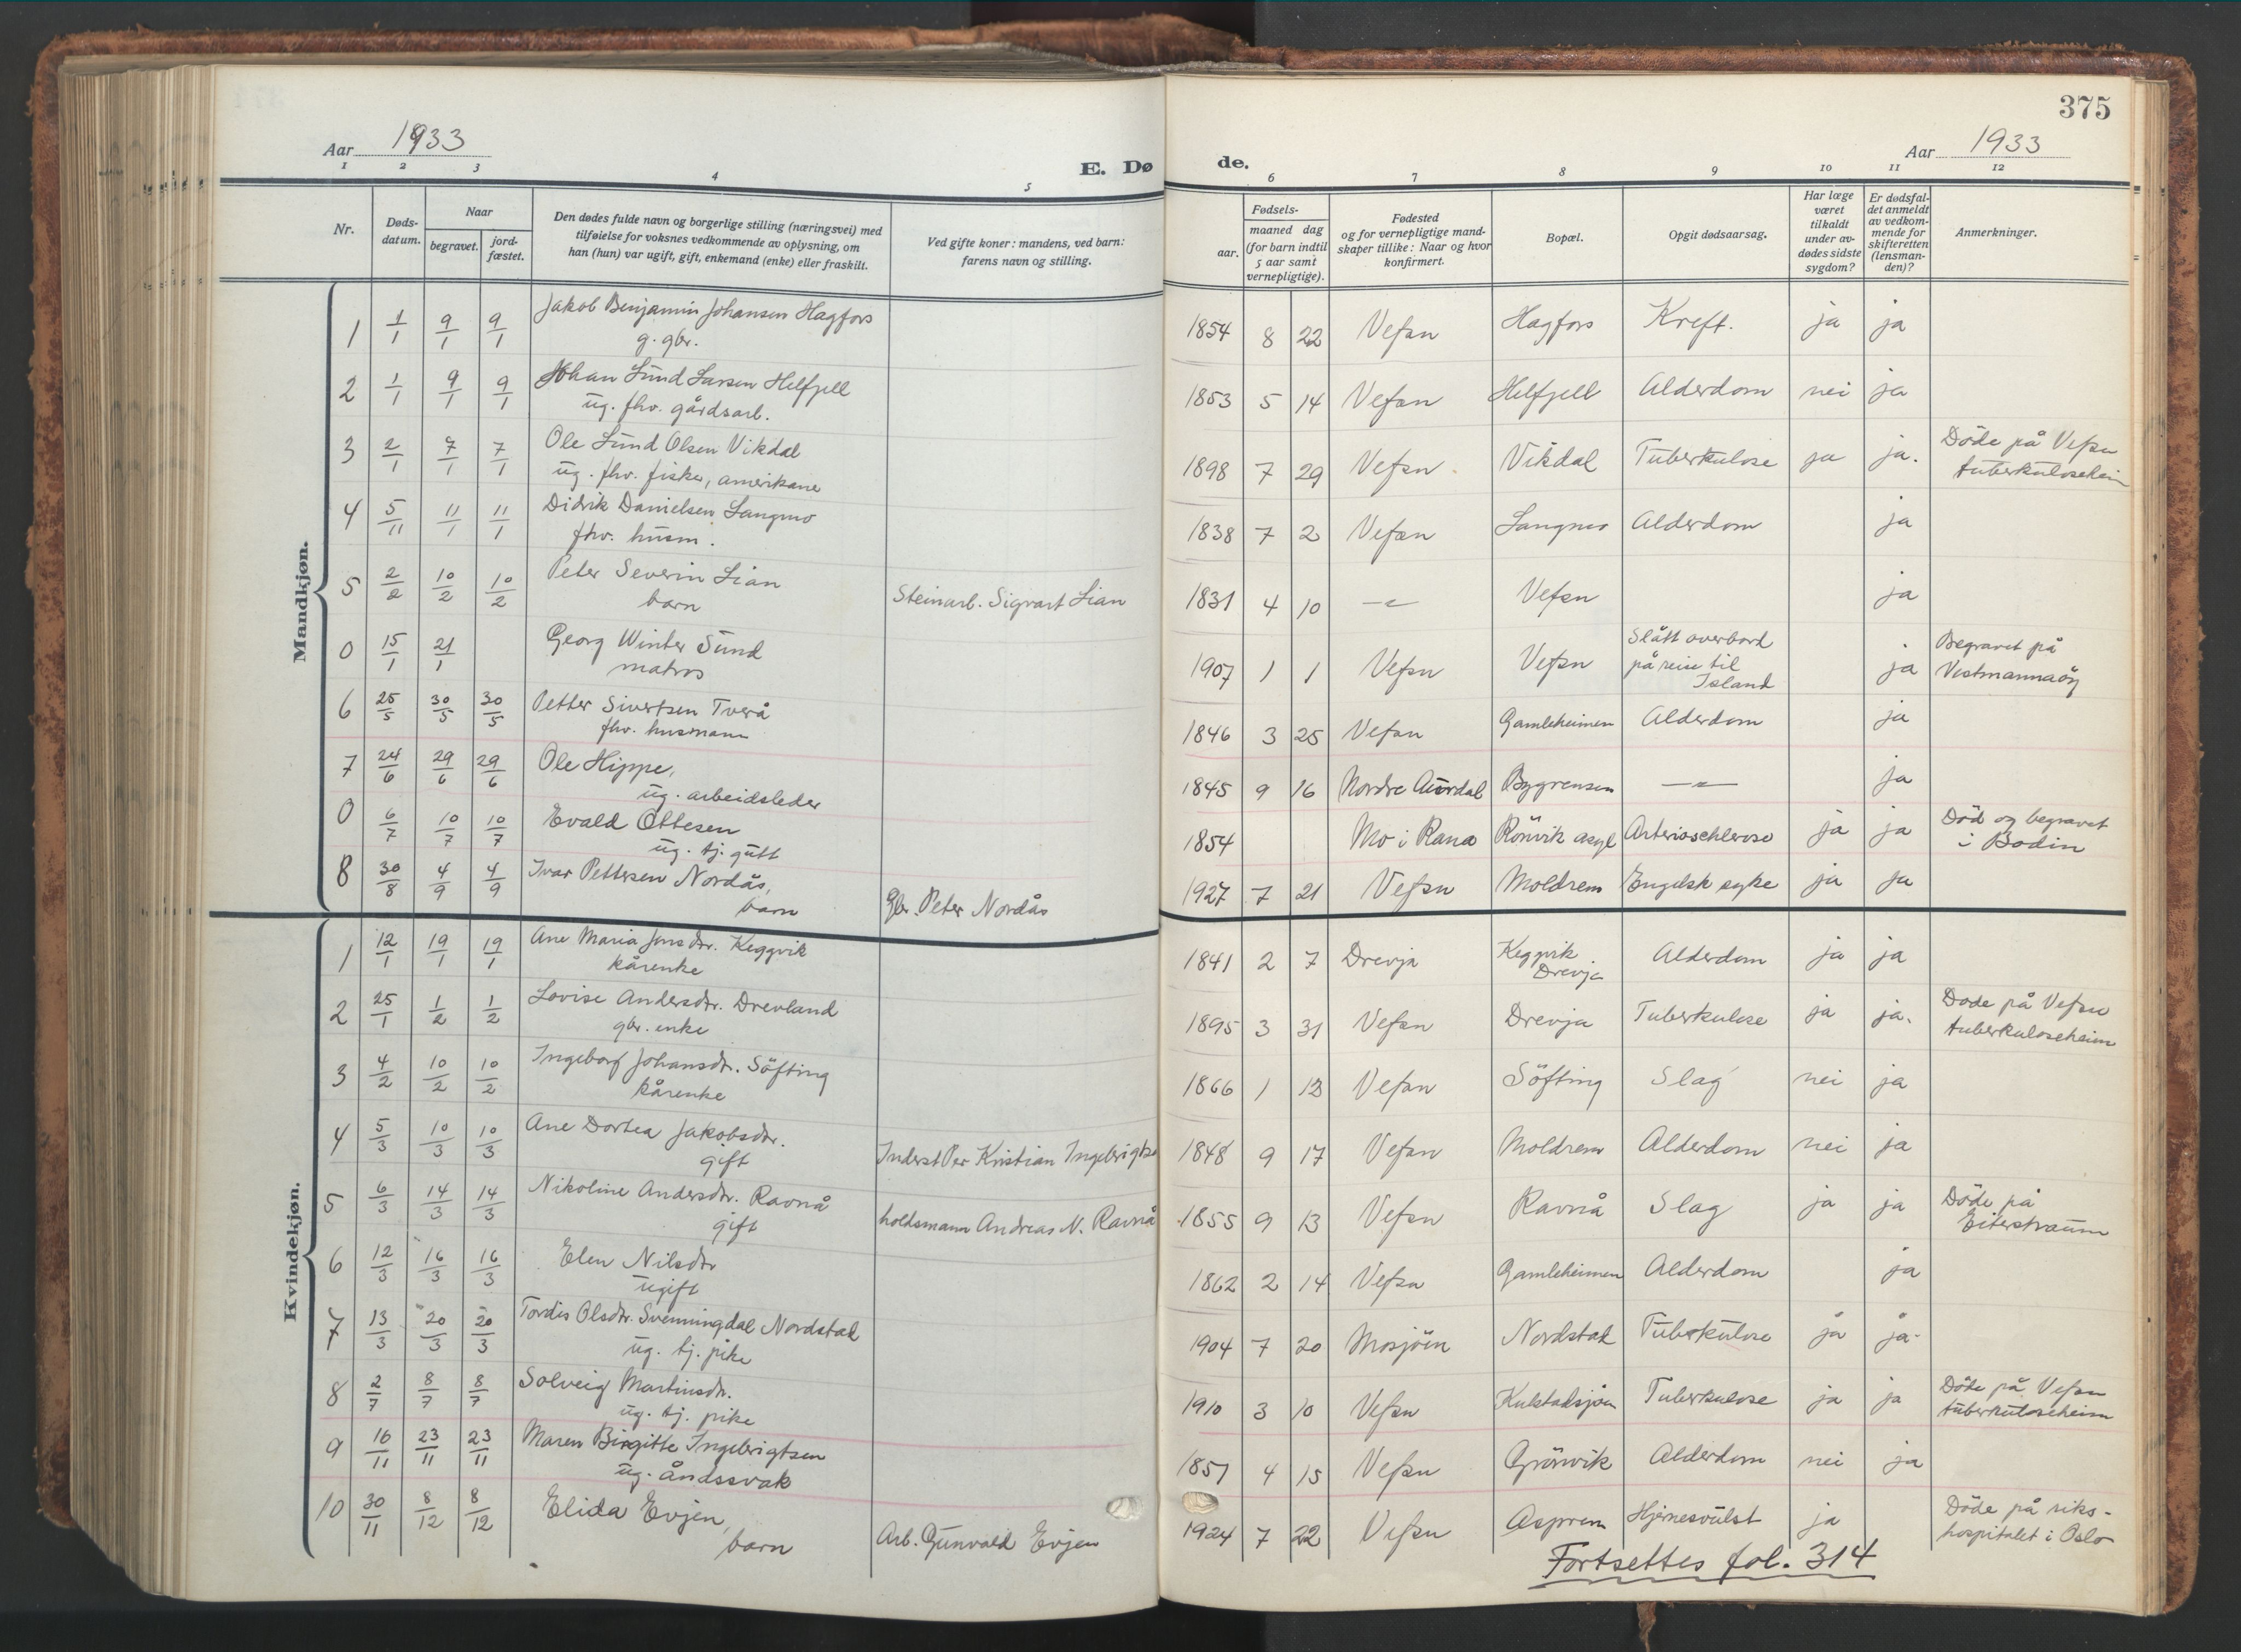 375
Aar 1933
E. Dø
de.
Aar 1933
1 2 3 4 5 6 7 8 9 10 11 12
Nr.
Døds-
datum.
Naar
begravet.
jord-
fæstet.
Den dødes fulde navn og borgerlige stilling (næringsvei) med
tilføielse for voksnes vedkommende av oplysning, om
han (hun) var ugift, gift, enkemand (enke) eller fraskilt.
Ved gifte koner: mandens, ved barn:
farens navn og stilling.
Fødsels-
aar.
maaned dag
(for barn indtil
5 aar samt
vernepligtige).
Fødested
og for vernepligtige mand-
skaper tillike: Naar og hvor
konfirmert.
Bopæl.
Opgit dødsaarsag.
Har læge
været
tilkaldt
under av-
dødes sidste
sygdom?
Er dødsfal-
det anmeldt
av vedkom-
mende for
skifteretten
(lensman-
den)?
Anmerkninger.
Mandkjøn.
1 1/1 9/1 9/1 Jakob Benjamin Johansen Hagfors 1854 8 22 Vefsn Hagfors Kreft. ja ja
g. gbr.
2 1/1 9/1 9/1 Johan Lund Larsen Helfjell 1853 5 14 Vefsn Helfjell Alderdom nei ja
ug. fhv. gårdsarb.
3 2/1 7/1 7/1 Ole Lund Olsen Vikdal 1898 7 29 Vefsn Vikdal Tuberkulose ja ja. Döde på Vefsn
ug. fhv. fisker, amerikaner tuberkuloseheim
4 5/11 11/1 11/1 Didrik Danielsen Langmo 1838 7 2 Vefsn Langmo Alderdom ja
fhv. husm.
5 2/2 10/2 10/2 Peter Severin Lian Steinarb. Sigvart Lian 1831 4 10 —"— Vefsn ja
barn
0 15/1 21/1 Georg Winter Sund 1907 1 1 Vefsn Vefsn Slått overbord ja Begravet på
matros på reise til Vestmannaöy
Island
6 25/5 30/5 30/5 Petter Sivertsen Tverå 1846 3 25 Vefsn Gamleheimen Alderdom ja
fhv. husmann
7 24/6 29/6 29/6 Ole Hippe, 1845 9 16 Nordre Aurdal Bygrensen —"— ja
ug. arbeidsleder
0 6/7 10/7 10/7 Evald Ottesen 1854 Mo i Rana Rönvik asyl Arteriosclerose ja ja Död og begravet
ug. tj. gutt i Bodin
8 30/8 4/9 4/9 Ivar Pettersen Nordås, Gbr. Peter Nordås 1927 7 21 Vefsn Moldrem Engelsk syke ja ja
barn
Kvindekjøn.
1 12/1 19/1 19/1 Ane Maria Jonsdtr. Keggvik 1841 2 7 Drevja Keggvik Alderdom ja ja
kårenke Drevja
2 25/1 1/2 1/2 Lovise Andersdtr. Drevland 1895 3 31 Vefsn Drevja Tuberkulose ja ja. Döde på Vefsn
gbr. enke tuberkuloseheim
3 4/2 10/2 10/2 Ingeborg Johansdtr. Söfting 1866 1 13 Vefsn Söfting Slag nei ja
kårenke
4 5/3 10/3 10/3 Ane Dortea Jakobsdtr. Inderst Per Kristian Ingebrigts 1848 9 17 Vefsn Moldrem Alderdom nei ja
gift
5 6/3 14/3 14/3 Nikoline Andersdtr. Ravnå holdsmann Andreas N. Ravnå 1855 9 13 Vefsn Ravnå Slag ja ja Döde på
gift Eiterstraum
6 12/3 16/3 16/3 Elen Nilsdtr 1862 2 14 Vefsn Gamleheimen Alderdom ja
ugift
7 13/3 20/3 20/3 Tordis Olsdtr. Svenningdal Nordstal 1904 7 20 Mosjöen Nordstal Tuberkulose ja ja
ug. tj. pike
8 2/7 8/7 8/7 Solveig Martinsdtr. 1910 3 10 Vefsn Kulstadsjöen Tuberkulose ja ja Döde på Vefsn
ug. tj. pike tuberkuloseheim
9 16/11 23/11 23/11 Maren Birgitte Ingebrigtsen 1851 4 15 Vefsn Grönvik Alderdom nei ja
ug. åndssvak
10 30/11 8/12 8/12 Elida Evjen, Arb. Gunvald Evjen 1924 7 22 Vefsn Osprem Hjernesvulst ja Döde på riks-
barn hospitalet i Oslo
Fortsettes fol. 314